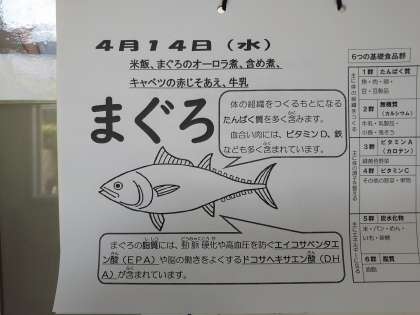 4月14日（水）
米飯、まぐろのオーロラ煮、含め煮、
キャベツの赤じそあえ、牛乳
まぐろ
体の組織をつくるもとになる
たんぱく質を多く含みます。
血合い肉には、ビタミンD、鉄
なども多く含まれています。
まぐろの脂質には、動脈硬化や高血圧を防ぐエイコサペンタエ
ン酸（EPA）や脳の働きをよくするドコサヘキサエン酸（DH
A）が含まれています。
6つの基礎食品群
1群 たんぱく質
魚・肉・卵・
豆・豆製品
2群 無機質
（カルシウム）
牛乳・乳製品・
小魚・海そう
3群 ビタミンA
（カロテン）
緑黄色野菜
4群 ビタミンC
その他の野菜・果物
5群 炭水化物
米・パン・めん・
いも・砂糖
6群 脂質
油脂